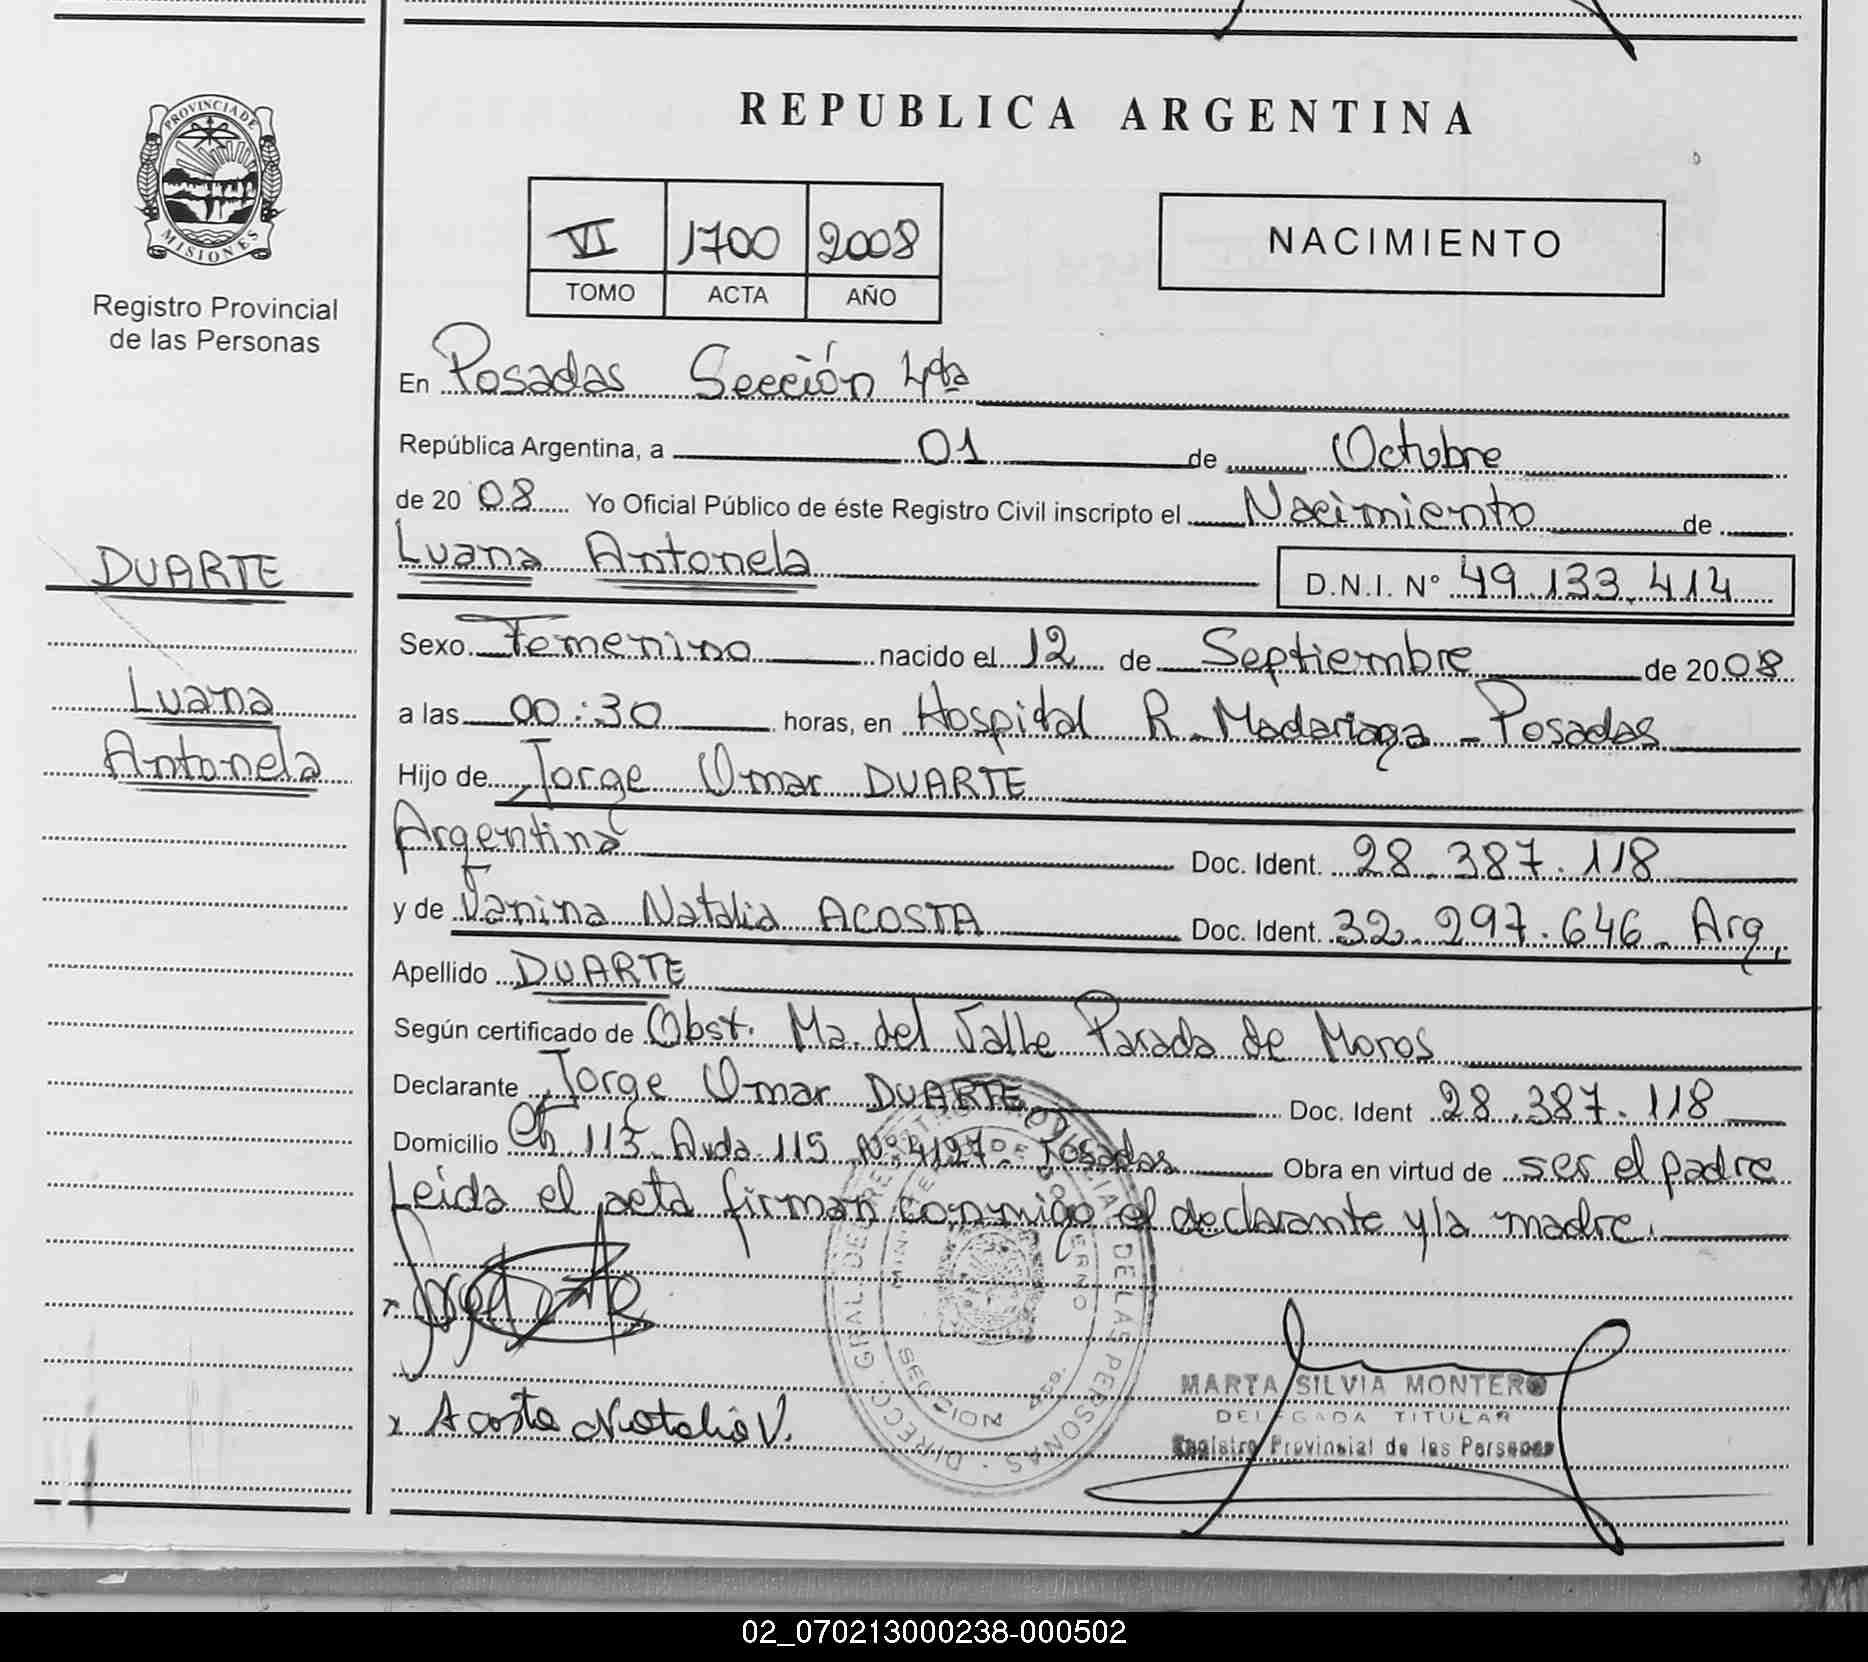 REPUBLICA ARGENTINA
PROVINCIA DE
MISIONES
Registro Provincial
de las Personas
VI 1700 2008
TOMO ACTA AÑO
NACIMIENTO
En Posadas Sección 4ta
República Argentina, a 01 de Octubre
de 2008 Yo Oficial Público de éste Registro Civil inscripto el Nacimiento de
Luana Antonela D.N.I. Nº 49.133.414
DUARTE
Luana
Antonela
Sexo Femenino nacido el 12 de Septiembre de 2008
a las 00:30 horas, en Hospital R. Madariaga - Posadas
Hijo de Jorge Omar DUARTE
Argentina Doc. Ident. 28.387.118
y de Vanina Natalia ACOSTA Doc. Ident. 32.297.646 - Arg,
Apellido DUARTE
Según certificado de Obst. Ma. del Valle Parada de Moros
Declarante Jorge Omar DUARTE Doc. Ident 28.387.118
Domicilio Ch. 113 - Avda 115 Nº 4127 - Posadas Obra en virtud de ser el padre
Leida el acta firman conmigo el declarante y la madre.
x Acosta Natalia V.
DIRECC. GRAL. DE REGISTRO PROVINCIAL DE LAS PERSONAS
SECCION 4ta.
MARTA SILVIA MONTERO
DELEGADA TITULAR
Registro Provincial de las Personas
02_070213000238-000502